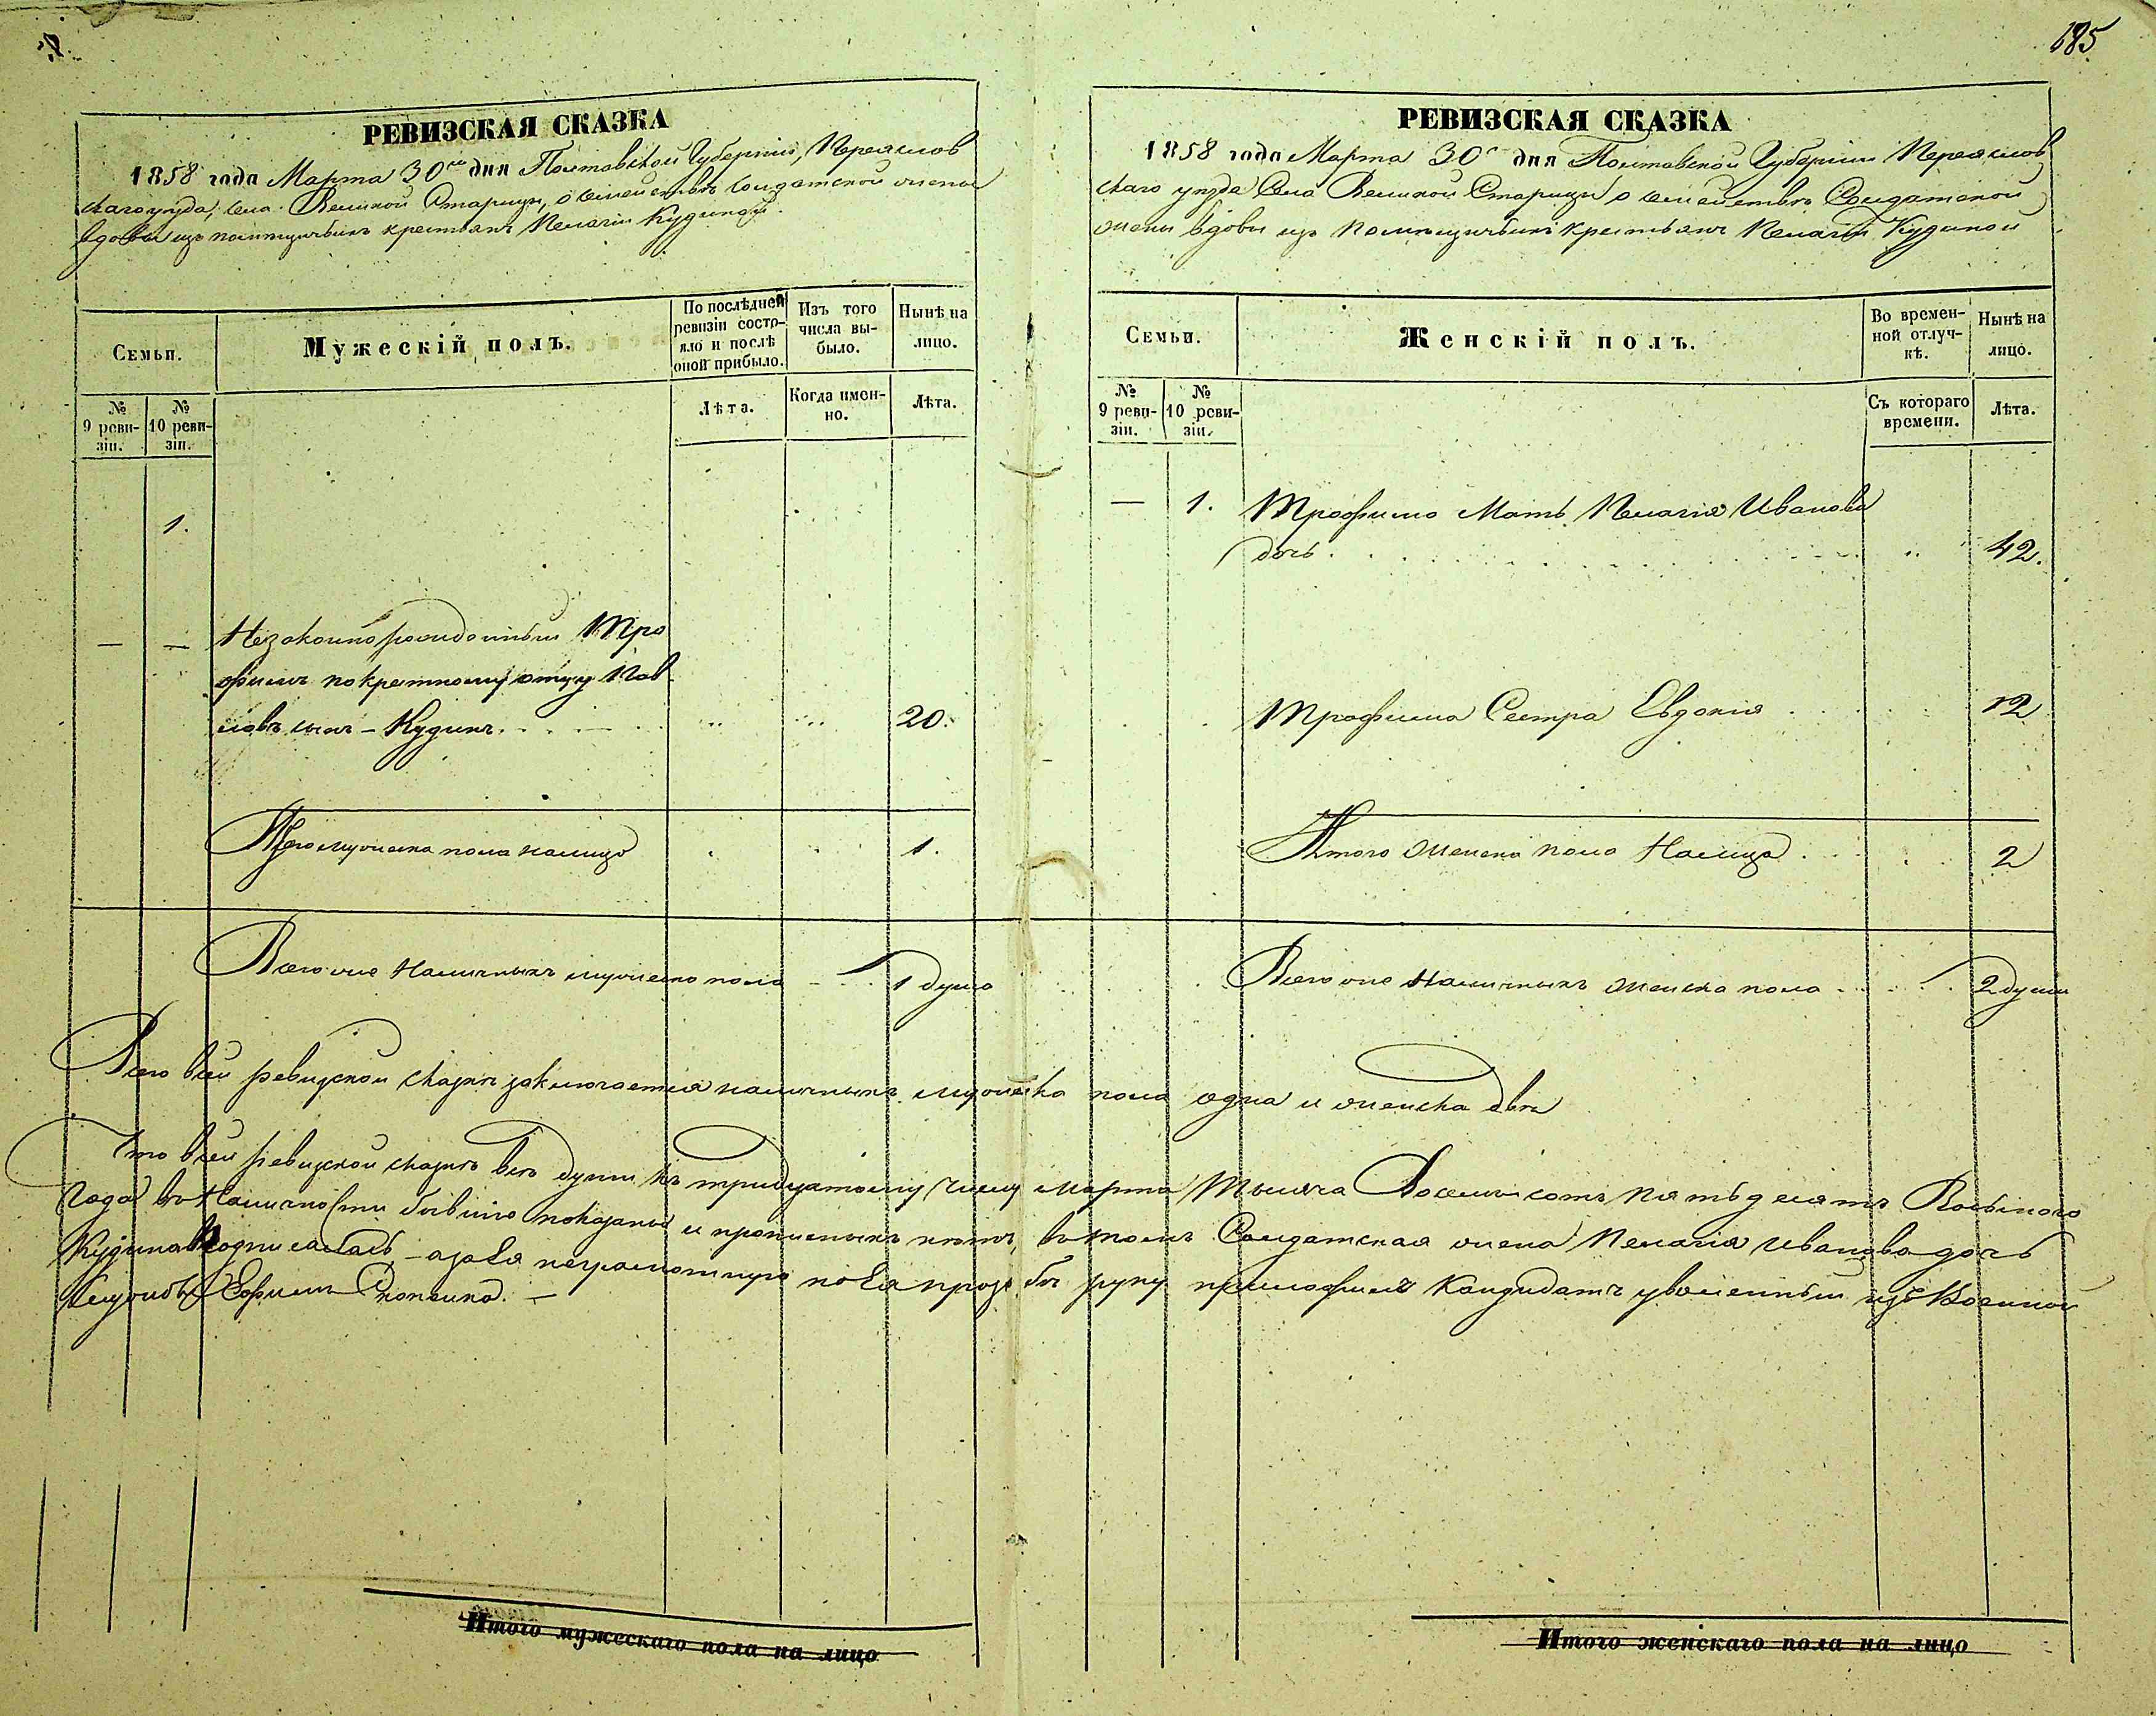 185
РЕВИЗСКАЯ СКАЗКА
1858 года Марта 30го дня Полтавской Губерніи, Переяслов
скаго уезда, села Великой Старицы, о семействе Солдатской жены
вдовы изъ помещичьихъ крестьянъ Пелагіи Кудиной.
Семьи.
Мужескій полъ.
По послѣдней
ревизіи состо-
яло и послѣ
оной прибыло.
Изъ того
числа вы-
было.
Нынѣ на
лицо.
№
9 реви-
зіи.
№
10 реви-
зіи.
Лѣта.
Когда имен-
но.
Лѣта.
1.
— — Незаконнорожденный Тро
фимъ по крестному отцу Пав
ловъ сынъ – Кудинъ. 20.
Итого мужеска пола налицо 1.
Всего же наличныхъ мужеска пола 1 душа
РЕВИЗСКАЯ СКАЗКА
1858 года Марта 30 дня Полтавской Губерніи Переяслов
скаго уезда Села Великой Старицы о семействе Солдатской
жены вдовы изъ Помещичьихъ крестьянъ Пелагіи Кудиной
Семьи.
Женскій полъ.
Во времен-
ной отлуч-
кѣ.
Нынѣ на
лицо.
№
9 реви-
зіи.
№
10 реви-
зіи.
Съ котораго
времени.
Лѣта.
— 1. Трофима Мать Пелагія Иванова
дочь. 42.
Трофима Сестра Евдокия 12
Итого Женска пола Налицо 2
Всего же Наличныхъ женска пола 2 души
Всего в сей ревизской сказке заключается наличныхъ мужеска пола одна и женска две
Что в сей ревизской сказке все души къ тридцатому числу марта Тысяча Восемьсотъ пятьдесятъ Восьмого
Года въ Наличности бывшие показаны и прописныхъ нетъ, въ томъ Солдатская жена Пелагія Иванова дочь
Кудина подписалась – а за Ея неграмотную по Ея прозьбе руку приложилъ Кандидатъ уволенный изъ Военной
Службы Ефимъ
Итого мужескаго пола на лицо
Итого женскаго пола на лицо